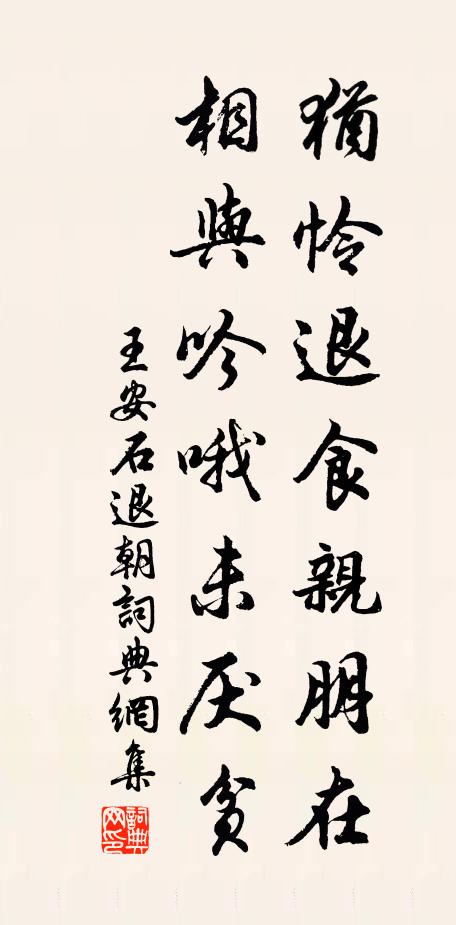 猶怜退食親朋在
相與吟哦未厌貧
王安石退朝詞典網集
詞典网印